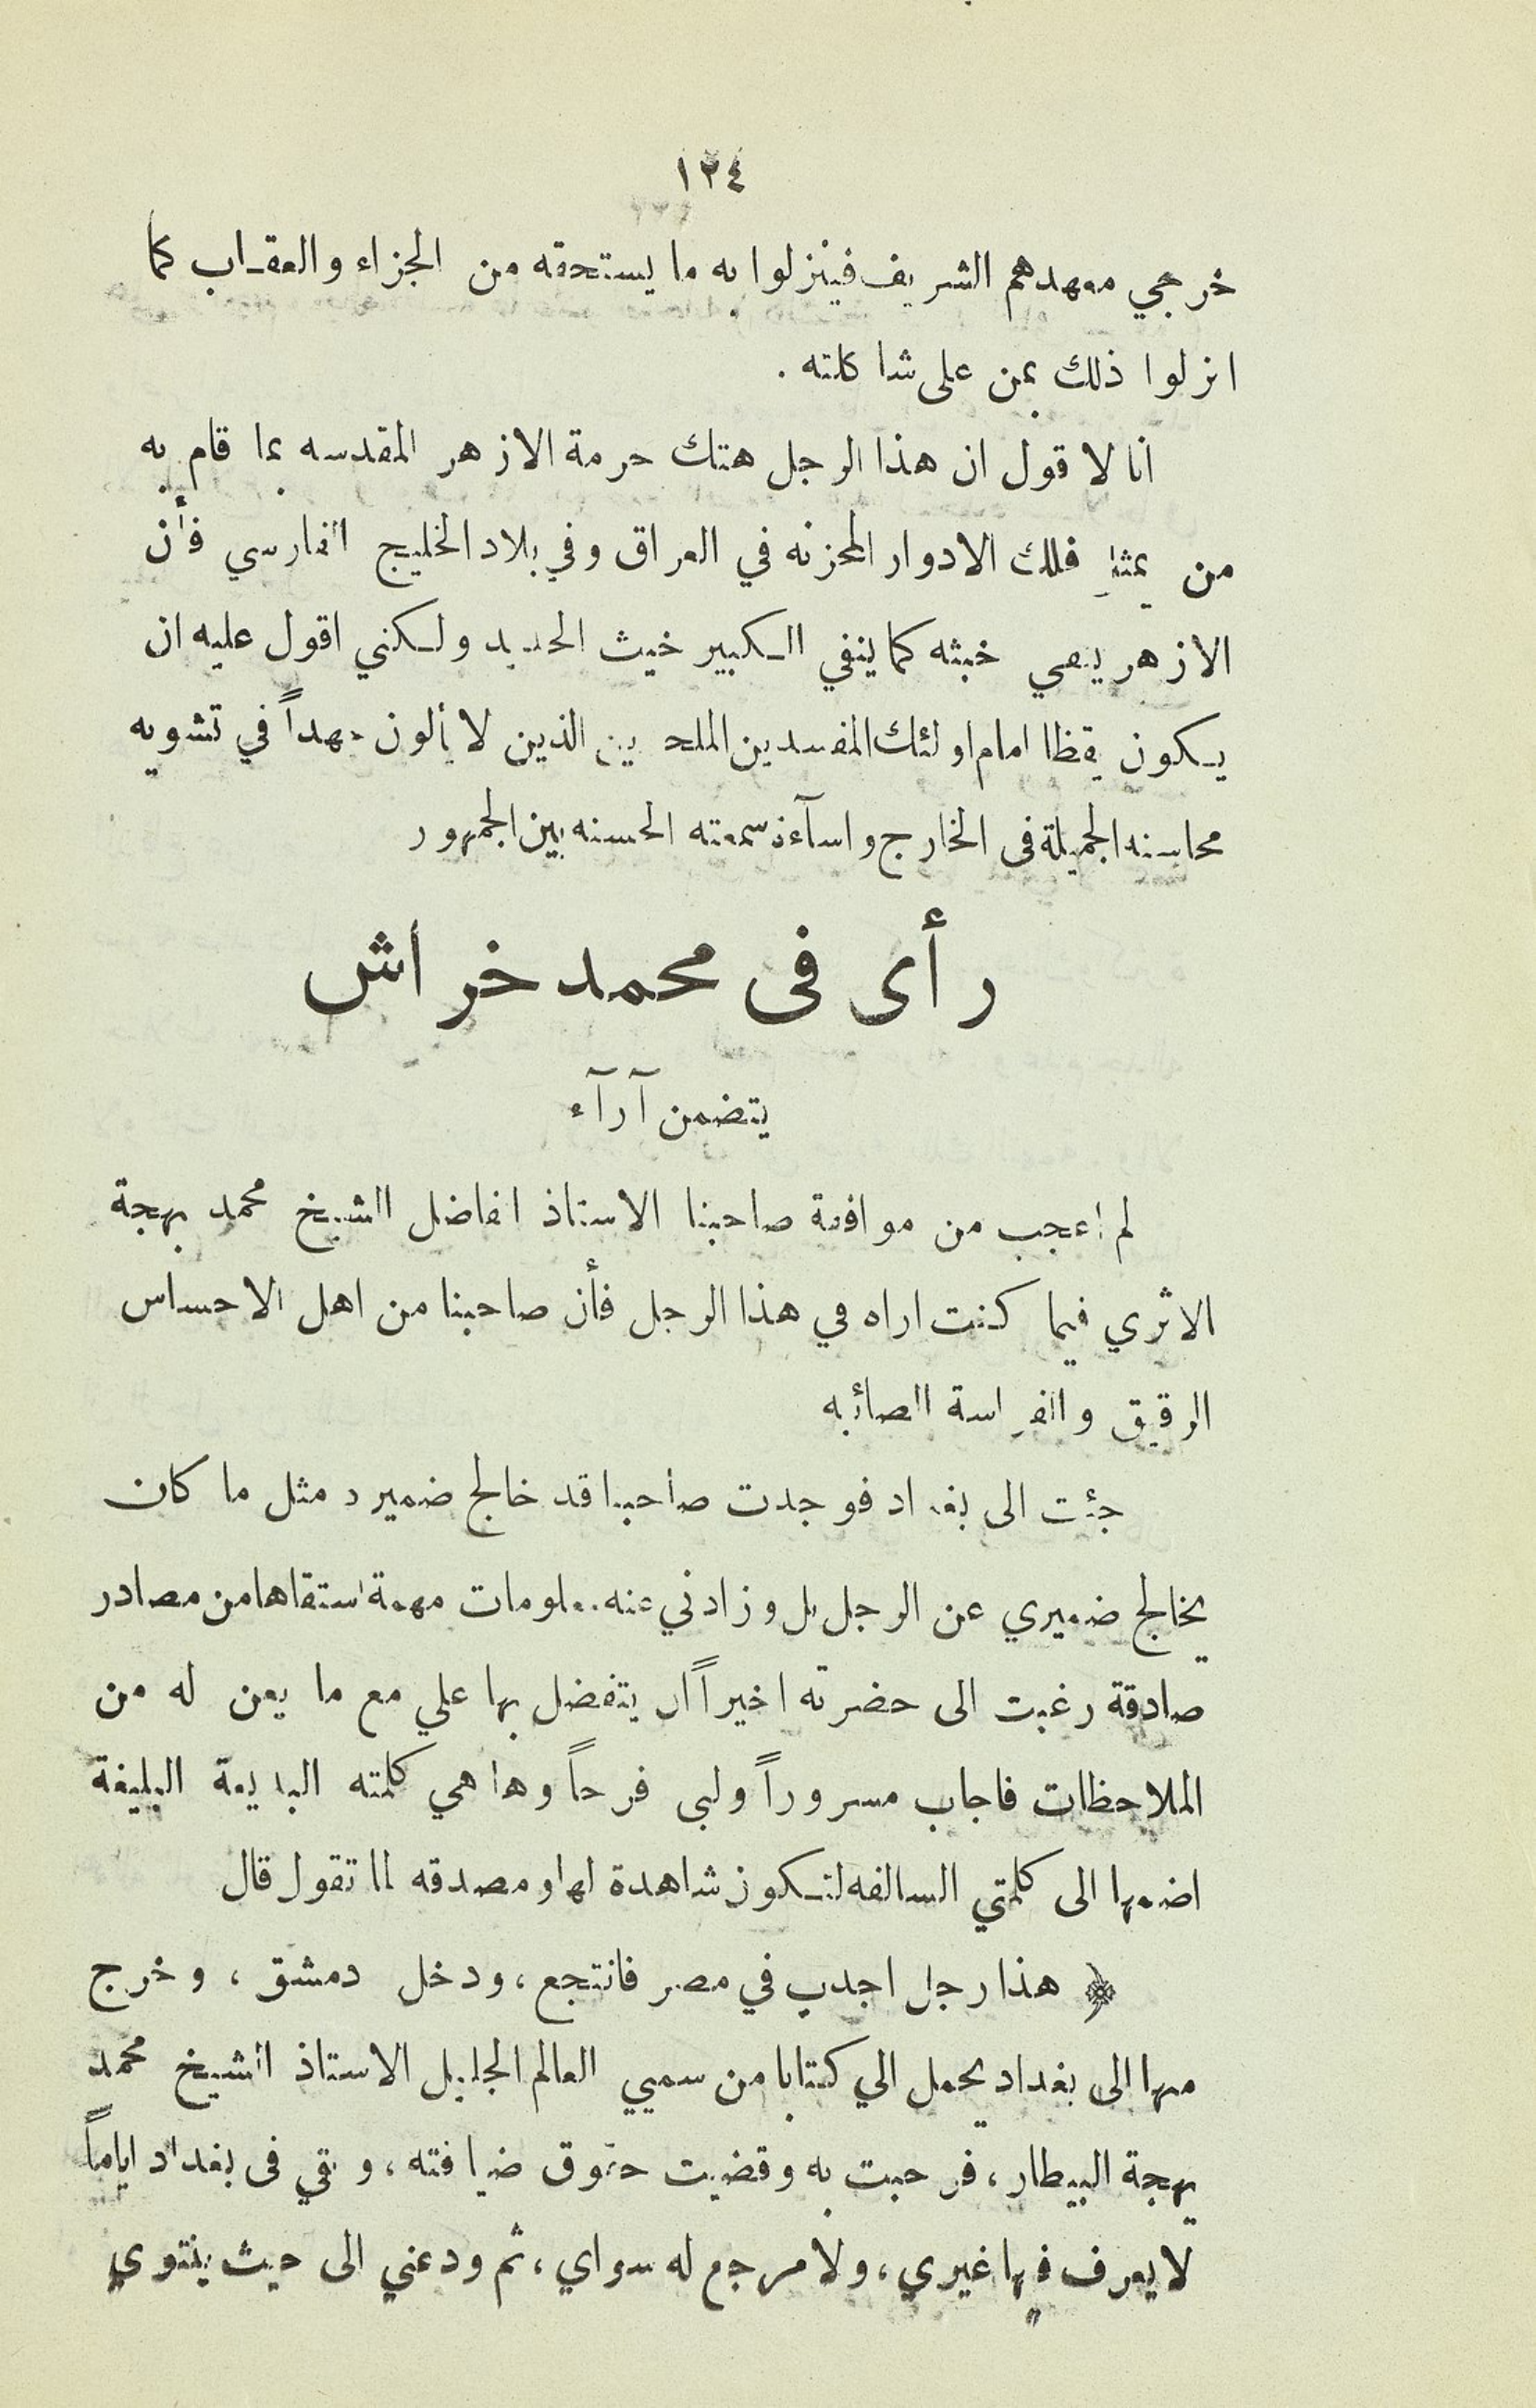 ١٢٤
خرجي معهدهم الشريف فينزلوا به ما يستحقه من الجزاء والعقـاب كما
انزلوا ذلك بمن على شاكلته .
انا لا قول ان هذا الرجل هتك حرمة الازهر المقدسه بما قام به
من تلك الادوار المحزنه في العراق وفي بلاد الخليج الفارسي فأن
الازهر خبثه كما ينفي الـكبير خيث الحديد ولـكني اقول عليه ان
يـكون يقظا امام اولئك المفسدين الملحدين الذين لا يألون جهداً في تشويه
محاسنه الجميلة فى الخارج واسآءة سمعته الحسنه بين الجمهور
رأى فى محمد خراش
يتضمن آرآء
لم اعجب من موافقة صاحبنا الاستاذ الفاضل الشيخ محمد بهجة
الاثري فيما كنت اراه في هذا الرجل فأن صاحبنا من اهل الاحساس
الرقيق والفراسة الصائبه
جئت الى بغداد فوجدت صاحبنا قد خالج ضميره مثل ما كان
يخالج ضميري عن الرجل بل وزادني عنه معلومات مهمة استقاها من مصادر
صادقة رغبت الى حضرته اخيراً ان يتفضل بها علي مع ما يعن له من
الملاحظات فاجاب مسروراً ولبى فرحاً وها هي كلمته البديعة البليغة
اضمها الى كلمتي السالفه لتـكون شاهدة لها ومصدقه لما تقول قال
﴿ هذا رجل اجدب في مصر فانتجع ، ودخل دمشق ، وخرج
منها الى بغداد يحمل الي كتابا من سميي العالم الجليل الاستاذ الشيخ محمد
بهجة البيطار ، فرحبت به وقضيت حقوق ضيافته ، وبقي فى بغداد اياماً
لا يعرف فيها غيري ، ولا مرجع له سواي ، ثم ودعني الى حيث ينتوي